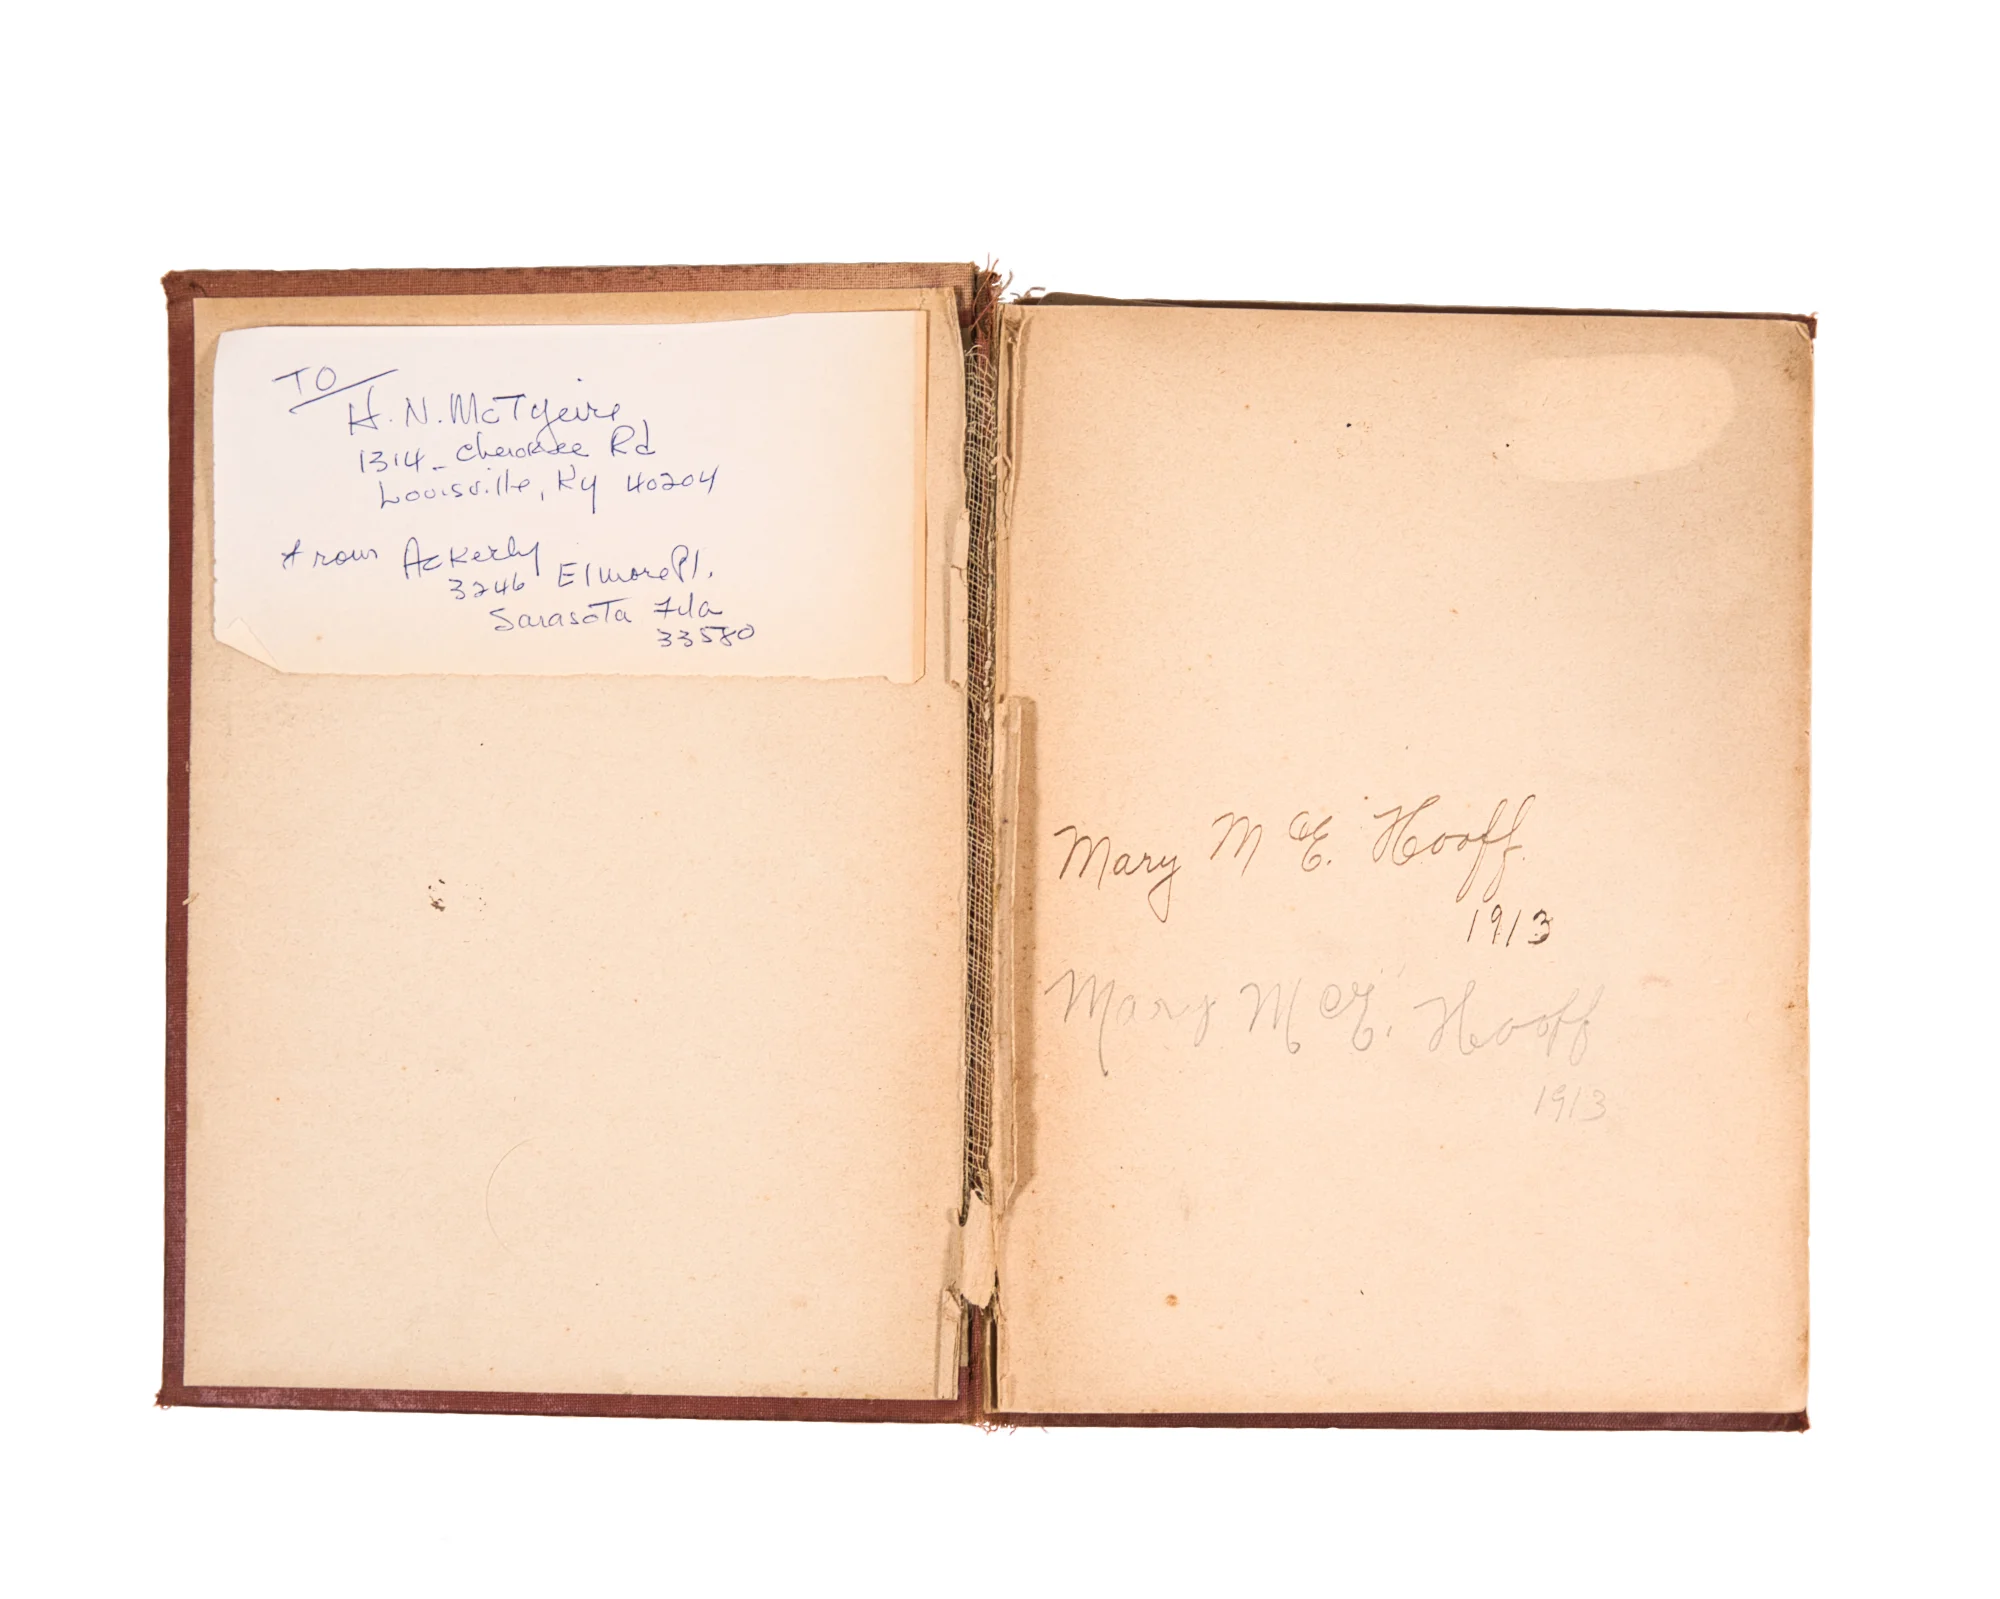 TO
H. N. McTyeire
1314 - Cherokee Rd
Louisville, Ky 40204
from Ackerly
3246 Elmore Pl.
Sarasota Fla
33580
Mary McE. Hooff.
1913
Mary McE. Hooff
1913